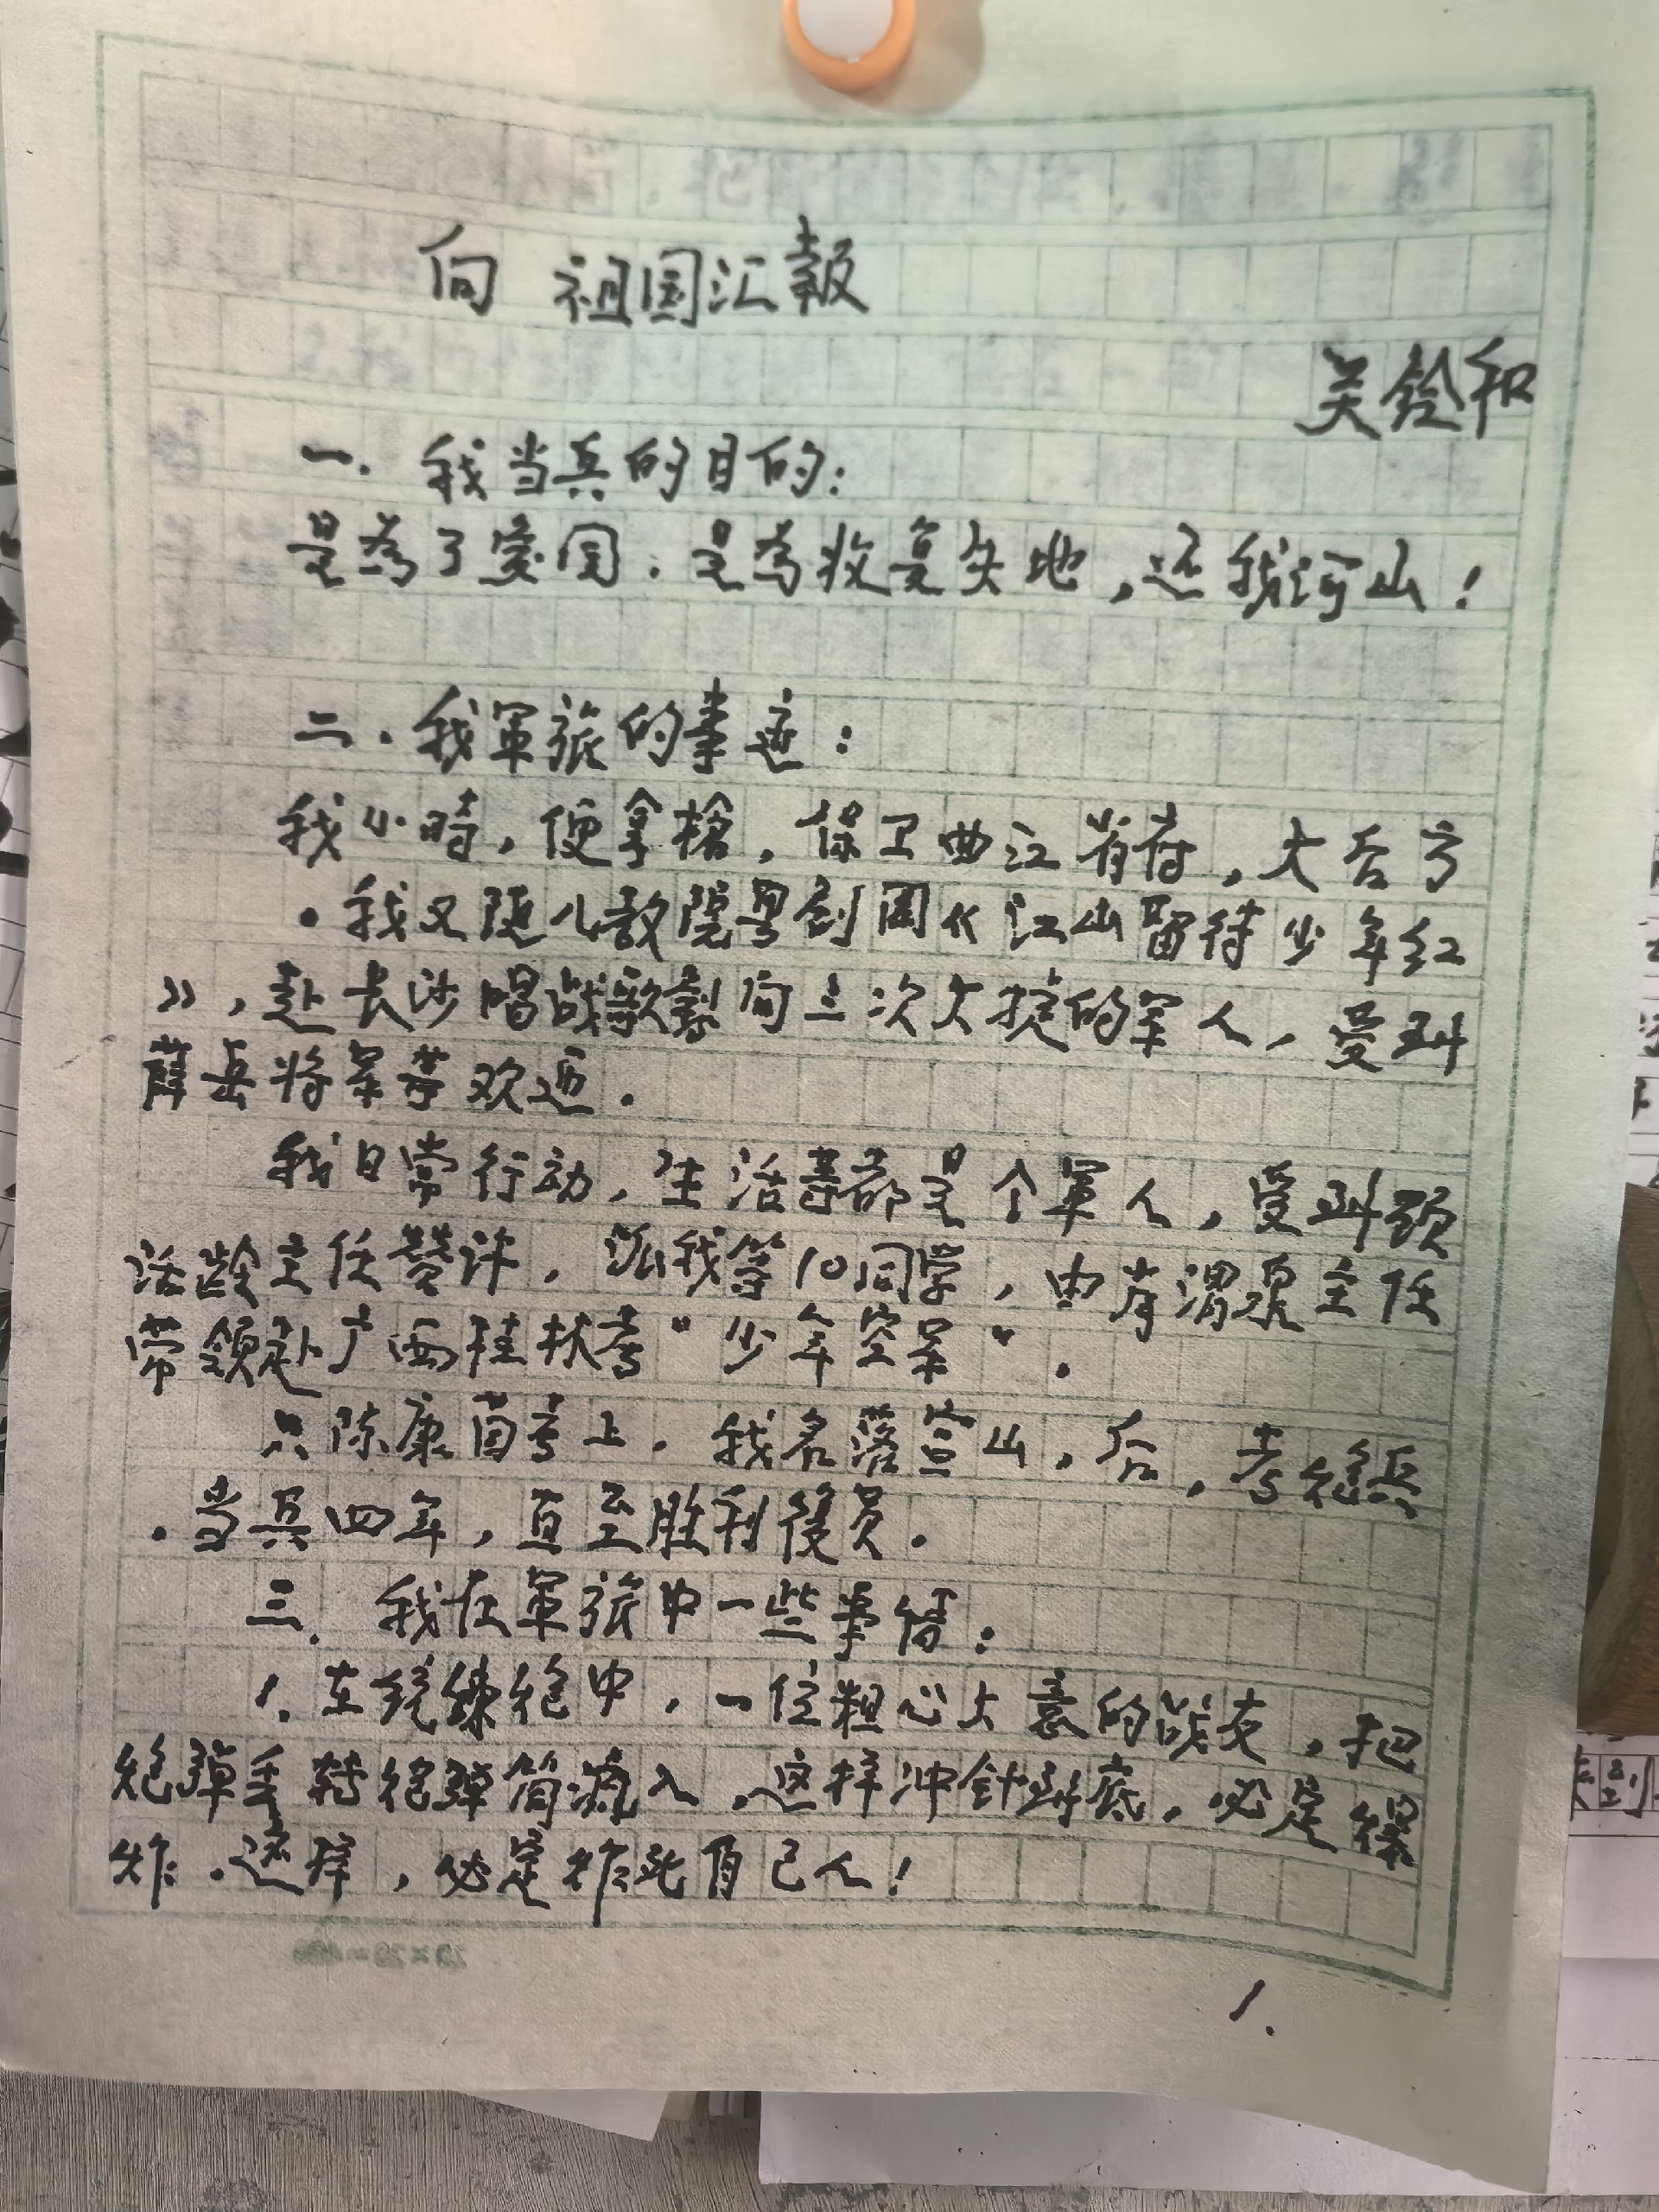 向 祖国汇報
关铨和
一. 我当兵的目的:
是為了爱国. 是為收复失地,还我河山!
二. 我軍旅的事迹:
我小時,便拿槍,保卫曲江省府,大后方
. 我又随儿教院粤剧团《江山留待少年红
》,赴长沙唱战歌劇向三次大捷的軍人,受到
薛岳将軍等欢迎.
我日常行动,生活等都是个軍人,受到
活齡主任赞许, 我等10同学,由 渭泉主任
带领赴广西桂林考“少年空軍”.
只陈康 考上. 我名落孫山. 后,考炮兵
. 当兵四年,直至胜利復员.
三. 我在軍旅中一些事情:
1. 在 練炮中,一位粗心大意的战友,把
炮弹 转炮弹筒 入. 这样冲針到底,必定爆
炸. 这样,必定炸死自己人!
1.